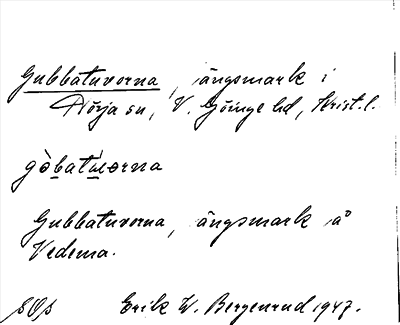 Gubbatuvorna, ängsmark i
Nörja sn, V. Göinge hd, Krist. l.
gòbatuvorna
Gubbatuvorna, ängsmark å
Vedema.
SOs Erik W. Bergenrud 1947.